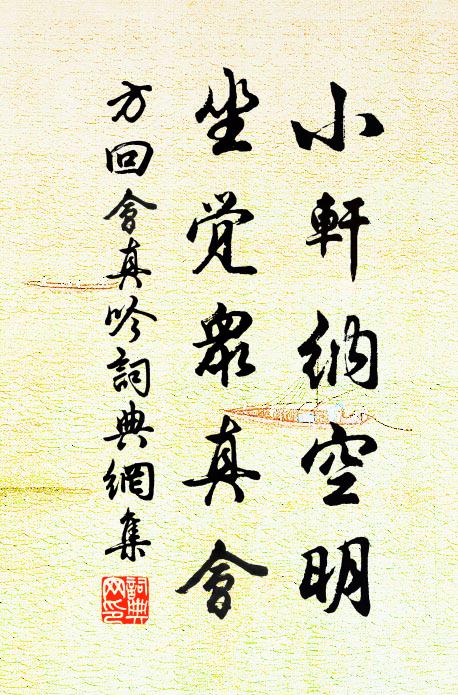 小軒納空明
坐覺眾真會
方回會真吟詞典網集
詞典網印